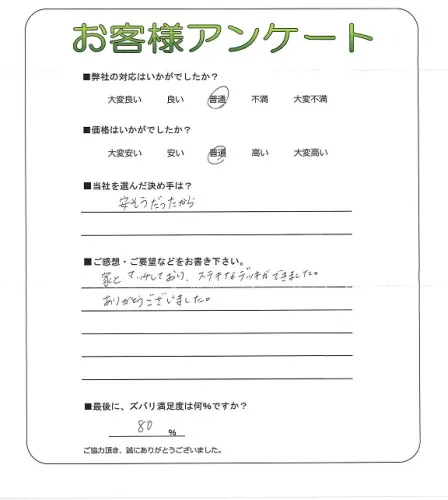 お客様アンケート
■弊社の対応はいかがでしたか？
大変良い 良い 普通 不満 大変不満
■価格はいかがでしたか？
大変安い 安い 普通 高い 大変高い
■当社を選んだ決め手は？
安そうだったから
■ご感想・ご要望などをお書き下さい。
家とマッチしており、ステキなデッキができました。
ありがとうございました。
■最後に、ズバリ満足度は何%ですか？
80 %
ご協力頂き、誠にありがとうございました。